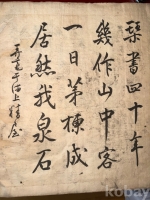 琴書四十年
幾作山中客
一日茅棟成
居然我泉石
kobay